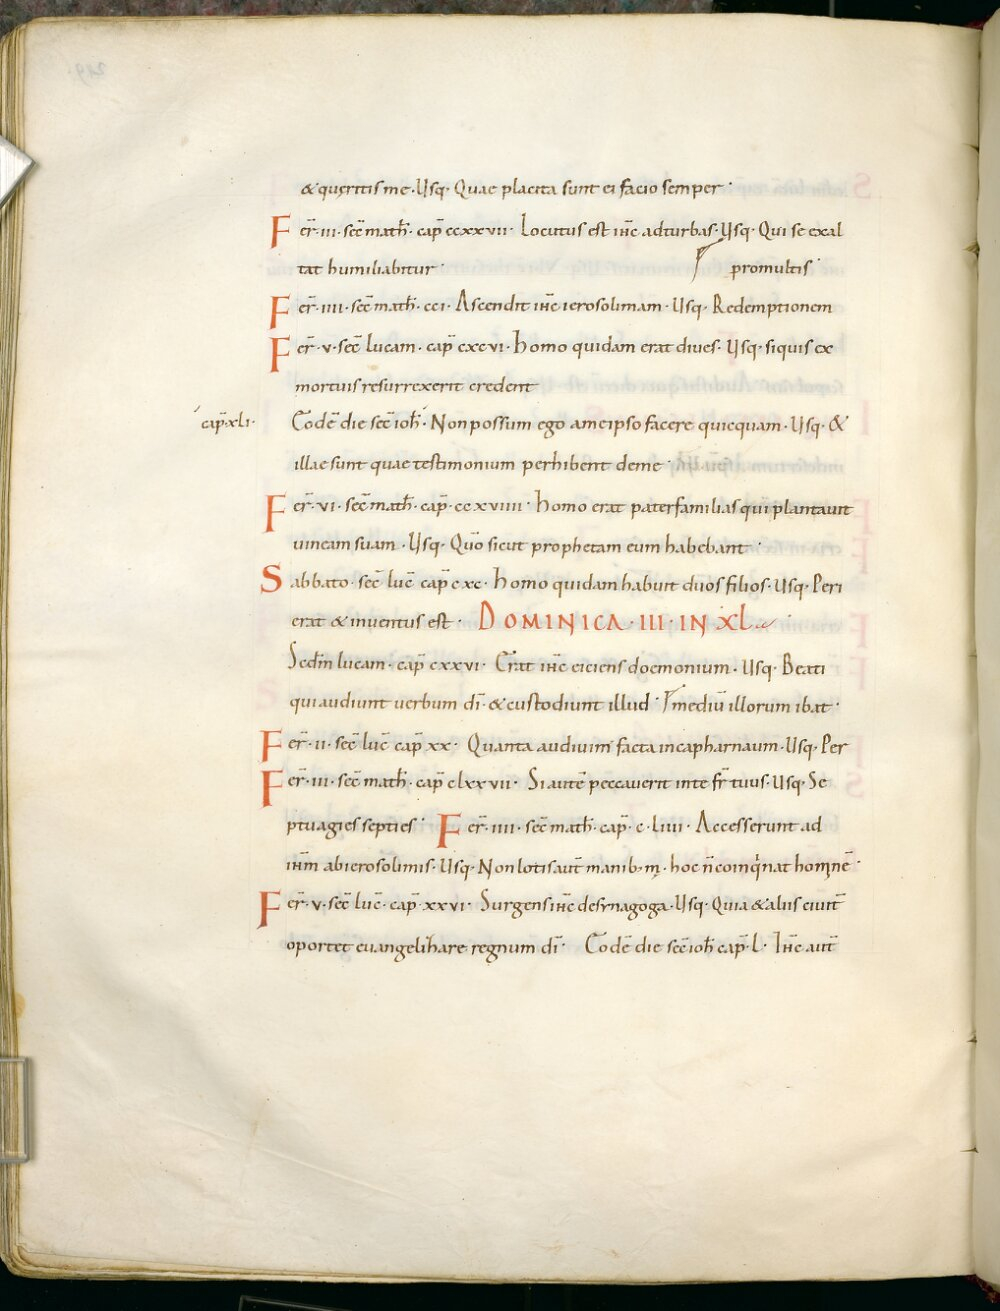 & quęritis me · Usq· Quae placita sunt ei facio semper ·
Fer̄ · iii · sec̄ math̄ · cap̄ ccxxvii · Locutus est ih̄c ad turbas · Usq· Qui se exal
tat humiliabitur · pro multis ·
Fer̄ · iiii · sec̄ math̄ · cci · Ascendit ih̄c ierosolimam · Usq· Redemptionem
Fer̄ · v · sec̄ lucam · cap̄ cxcvi · homo quidam erat diues · Usq· si quis ex
mortuis resurrexerit credent
cap̄ · xli · Eodē die sec̄ ioh̄ · Non possum ego a me ipso facere quicquam · Usq· &
illae sunt quae testimonium perhibent de me ·
Fer̄ · vi · sec̄ math̄ · cap̄ · ccxviiii · homo erat paterfamilias qui plantauit
uineam suam · Usq· Qūo sicut prophetam eum habebant ·
Sabbato · sec̄ luc̄ cap̄ cxc · homo quidam habuit duos filios · Usq· Peri
erat & inuentus est · DOMINICA · III · IN XL
Sedm̄ lucam · cap̄ cxxvi · Erat ih̄c eiciens doemonium · Usq· Beati
qui audiunt uerbum dī · & custodiunt illud · p mediū illorum ibat ·
Fer̄ · ii · sec̄ luc̄ cap̄ xx · Quanta audiuim' facta in capharnaum · Usq· Per
Fer̄ · iii · sec̄ math̄ · cap̄ clxxvii · Si autē peccauerit in te fr̄ tuus · Usq· Se
ptuagies septies · Fer̄ · iiii · sec̄ math̄ · cap̄ · c · liiii · Accesserunt ad
ih̄m ab ierosolimis · Usq· Non lotis aut̄ manib; m · hoc n̄ coinq̇nat hominē ·
Fer̄ · v · sec̄ luc̄ · cap̄ xxvi · Surgens ih̄c de synagoga · Usq· Quia & aliis ciuit̄
oportet euangelihare regnum dī · Eodē die sec̄ ioh̄ cap̄ · l · Ih̄c aut̄